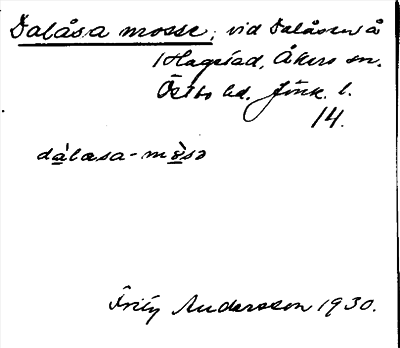 Dalåsa mosse; vid Dalåsen å
Hagstad, Åkers sn.
Östbo hd. Jönk. l.
14.
dàlasa-mòsə
Fritz Andersson 1930.